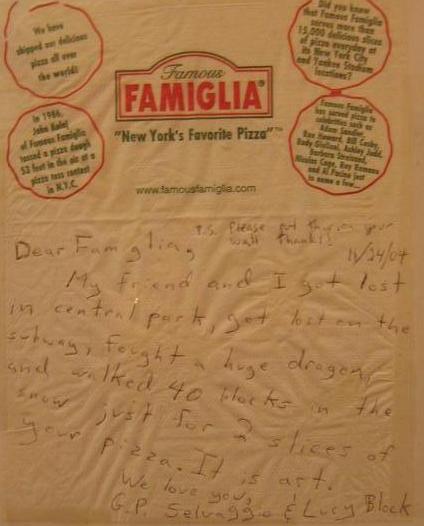 We have
shipped our delicious
pizza all over
the world!
Did you know
that Famous Famiglia
serves more than
15,000 delicious slices
of pizza everyday at
its New York City
and Yankee Stadium
locations?
Famous
FAMIGLIA®
"New York's Favorite Pizza"™
In 1986,
John Kolaj
of Famous Famiglia
tossed a pizza dough
53 feet in the air at a
pizza toss contest
in N.Y.C.
Famous Famiglia
has served pizza to
celebrities such as
Adam Sandler,
Ron Howard, Bill Cosby,
Rudy Giuliani, Ashley Judd,
Barbara Streisand,
Nicolas Cage, Ray Romano
and Al Pacino just
to name a few...
www.famousfamiglia.com
P.S. Please put this on your
wall Thanks!
Dear Famiglia, 11/24/04
My friend and I got lost
in central park, got lost on the
subway, fought a huge dragon,
and walked 40 blocks in the
snow just for 2 slices of
your pizza. It is art.
We love you,
G.P. Selvaggio & Lucy Block